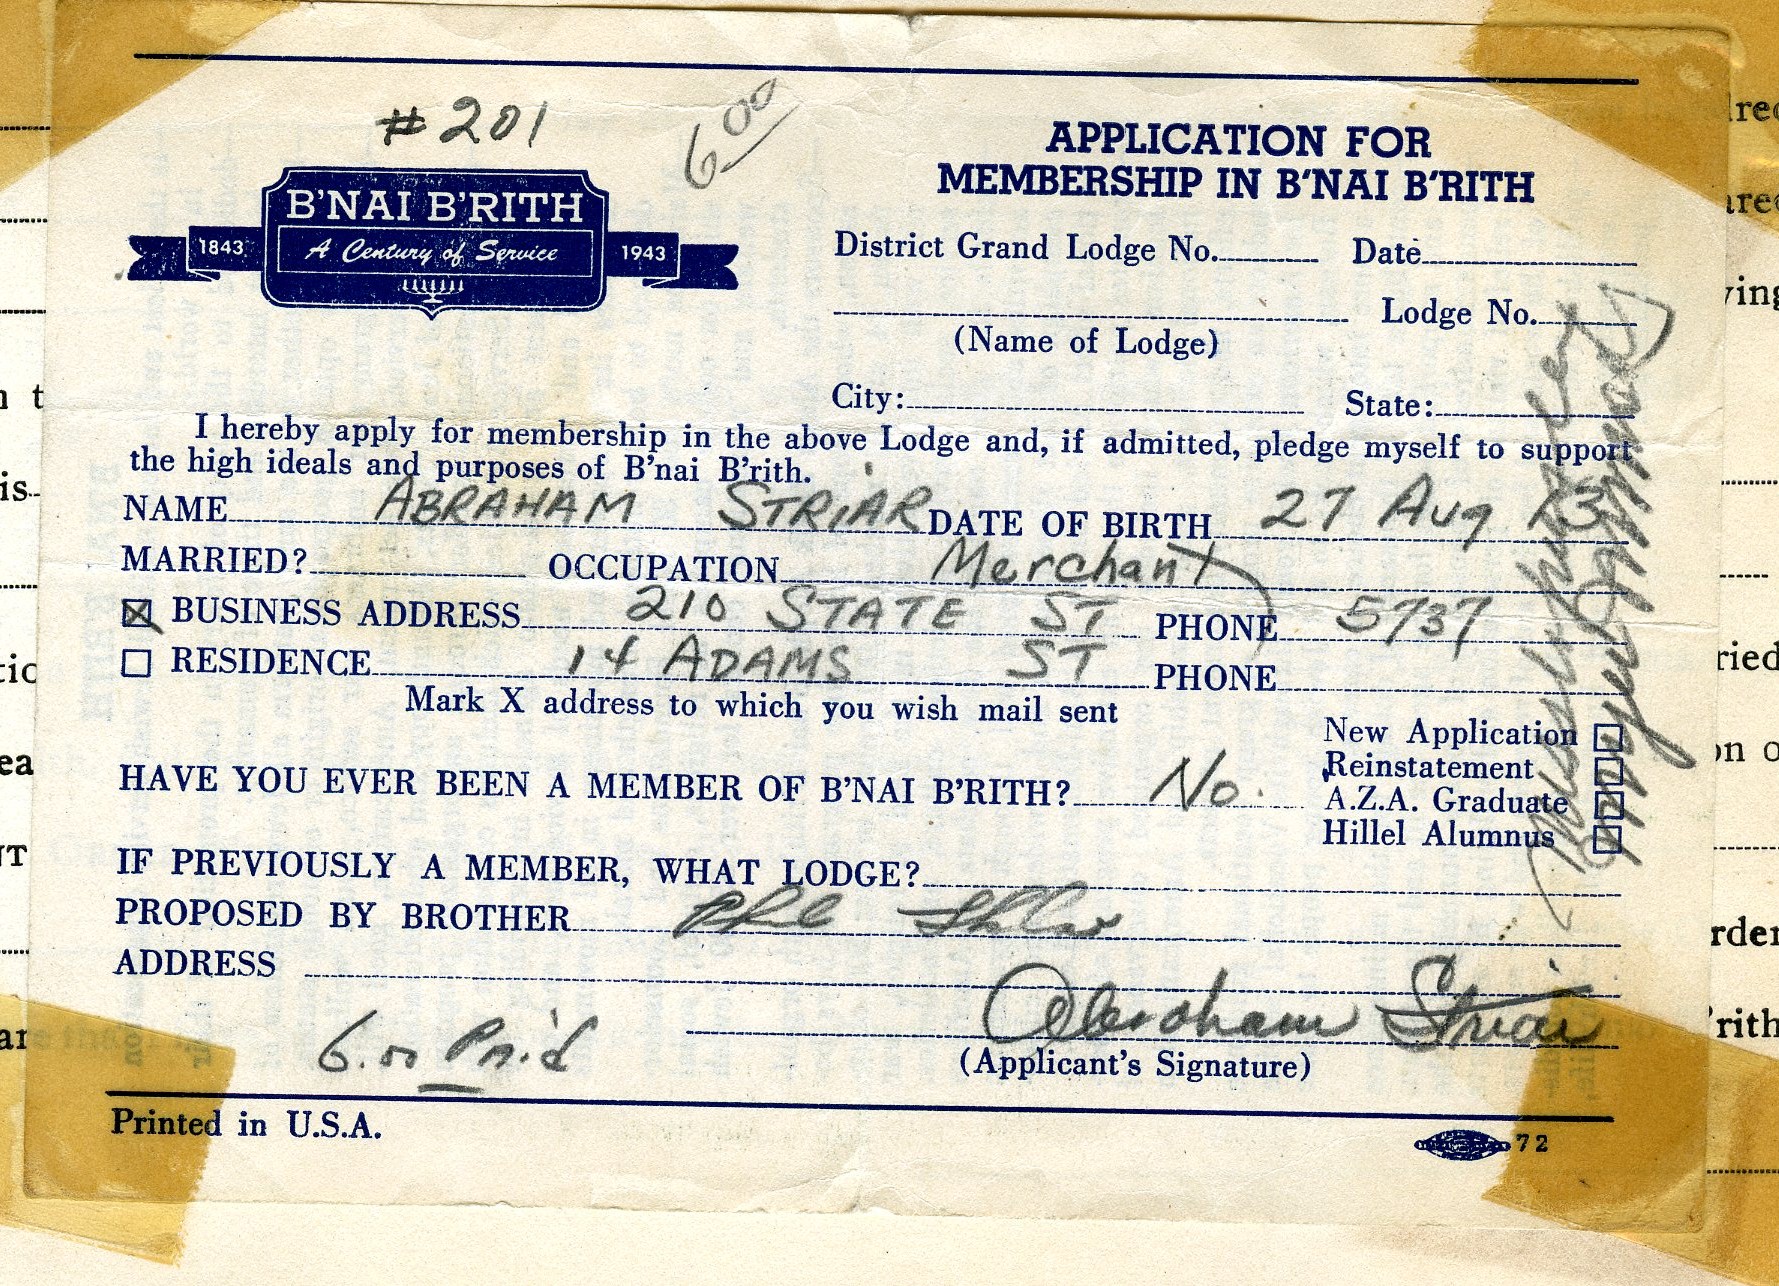 #201
6.00
B'NAI B'RITH
1843 A Century of Service 1943
APPLICATION FOR
MEMBERSHIP IN B'NAI B'RITH
District Grand Lodge No. Date
Lodge No.
(Name of Lodge)
City: State:
I hereby apply for membership in the above Lodge and, if admitted, pledge myself to support
the high ideals and purposes of B'nai B'rith.
NAME ABRAHAM STRIAR DATE OF BIRTH 27 Aug 13
MARRIED? OCCUPATION Merchant
BUSINESS ADDRESS 210 STATE ST PHONE 5737
RESIDENCE 14 ADAMS ST PHONE
Mark X address to which you wish mail sent
New Application
Reinstatement
HAVE YOU EVER BEEN A MEMBER OF B'NAI B'RITH? No.
A.Z.A. Graduate
Hillel Alumnus
IF PREVIOUSLY A MEMBER, WHAT LODGE?
PROPOSED BY BROTHER Phil
ADDRESS
Abraham Striar
6.00 Paid
(Applicant's Signature)
Printed in U.S.A.
72